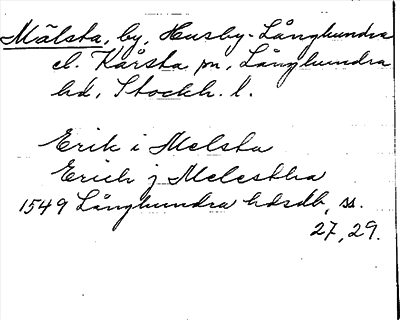 Mälsta, by, Husby-Långhundra
el. Kårsta sn, Långhundra
hd, Stockh. l.
Erik i Melsta
Erich j Melestha
1549 Långhundra hdsdb, ss.
27, 29.